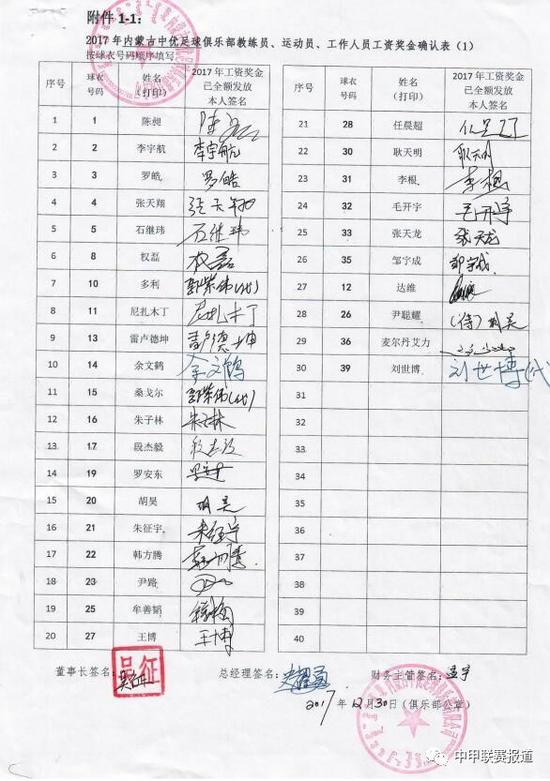 附件 1-1:
2017 年内蒙古中优足球俱乐部教练员、运动员、工作人员工资奖金确认表（1）
按球衣号码顺序填写
序号 球衣号码 姓名（打印） 2017 年工资奖金已全额发放本人签名
1 1 陈昶
2 2 李宇航 李宇航
3 3 罗皓 罗皓
4 4 张天翔 张天翔
5 5 石继玮 石继玮
6 8 权磊 权磊
7 10 多利 郭荣伟(代)
8 11 尼扎木丁 尼扎木丁
9 13 雷卢德坤 雷卢德坤
10 14 余文鹤 余文鹤
11 15 桑戈尔 郭荣伟(代)
12 16 朱子林 朱子林
13 17 段杰毅
14 19 罗安东
15 20 胡昊 胡昊
16 21 朱征宇 朱征宇
17 22 韩方腾
18 23 尹路
19 25 牟善韬
20 27 王博 王博
序号 球衣号码 姓名（打印） 2017 年工资奖金已全额发放本人签名
21 28 任晨超
22 30 耿天明 耿天明
23 31 李根 李根
24 32 毛开宇 毛开宇
25 33 张天龙 张天龙
26 35 邹宇成 邹宇成
27 12 达维
28 26 尹聪耀 胡昊
29 36 麦尔丹艾力
30 39 刘世博 刘世博(代)
31
32
33
34
35
36
37
38
39
40
董事长签名: 吴征
总经理签名:
财务主管签名: 孟宇
2017 年 12 月 30 日（俱乐部公章）
中甲联赛报道